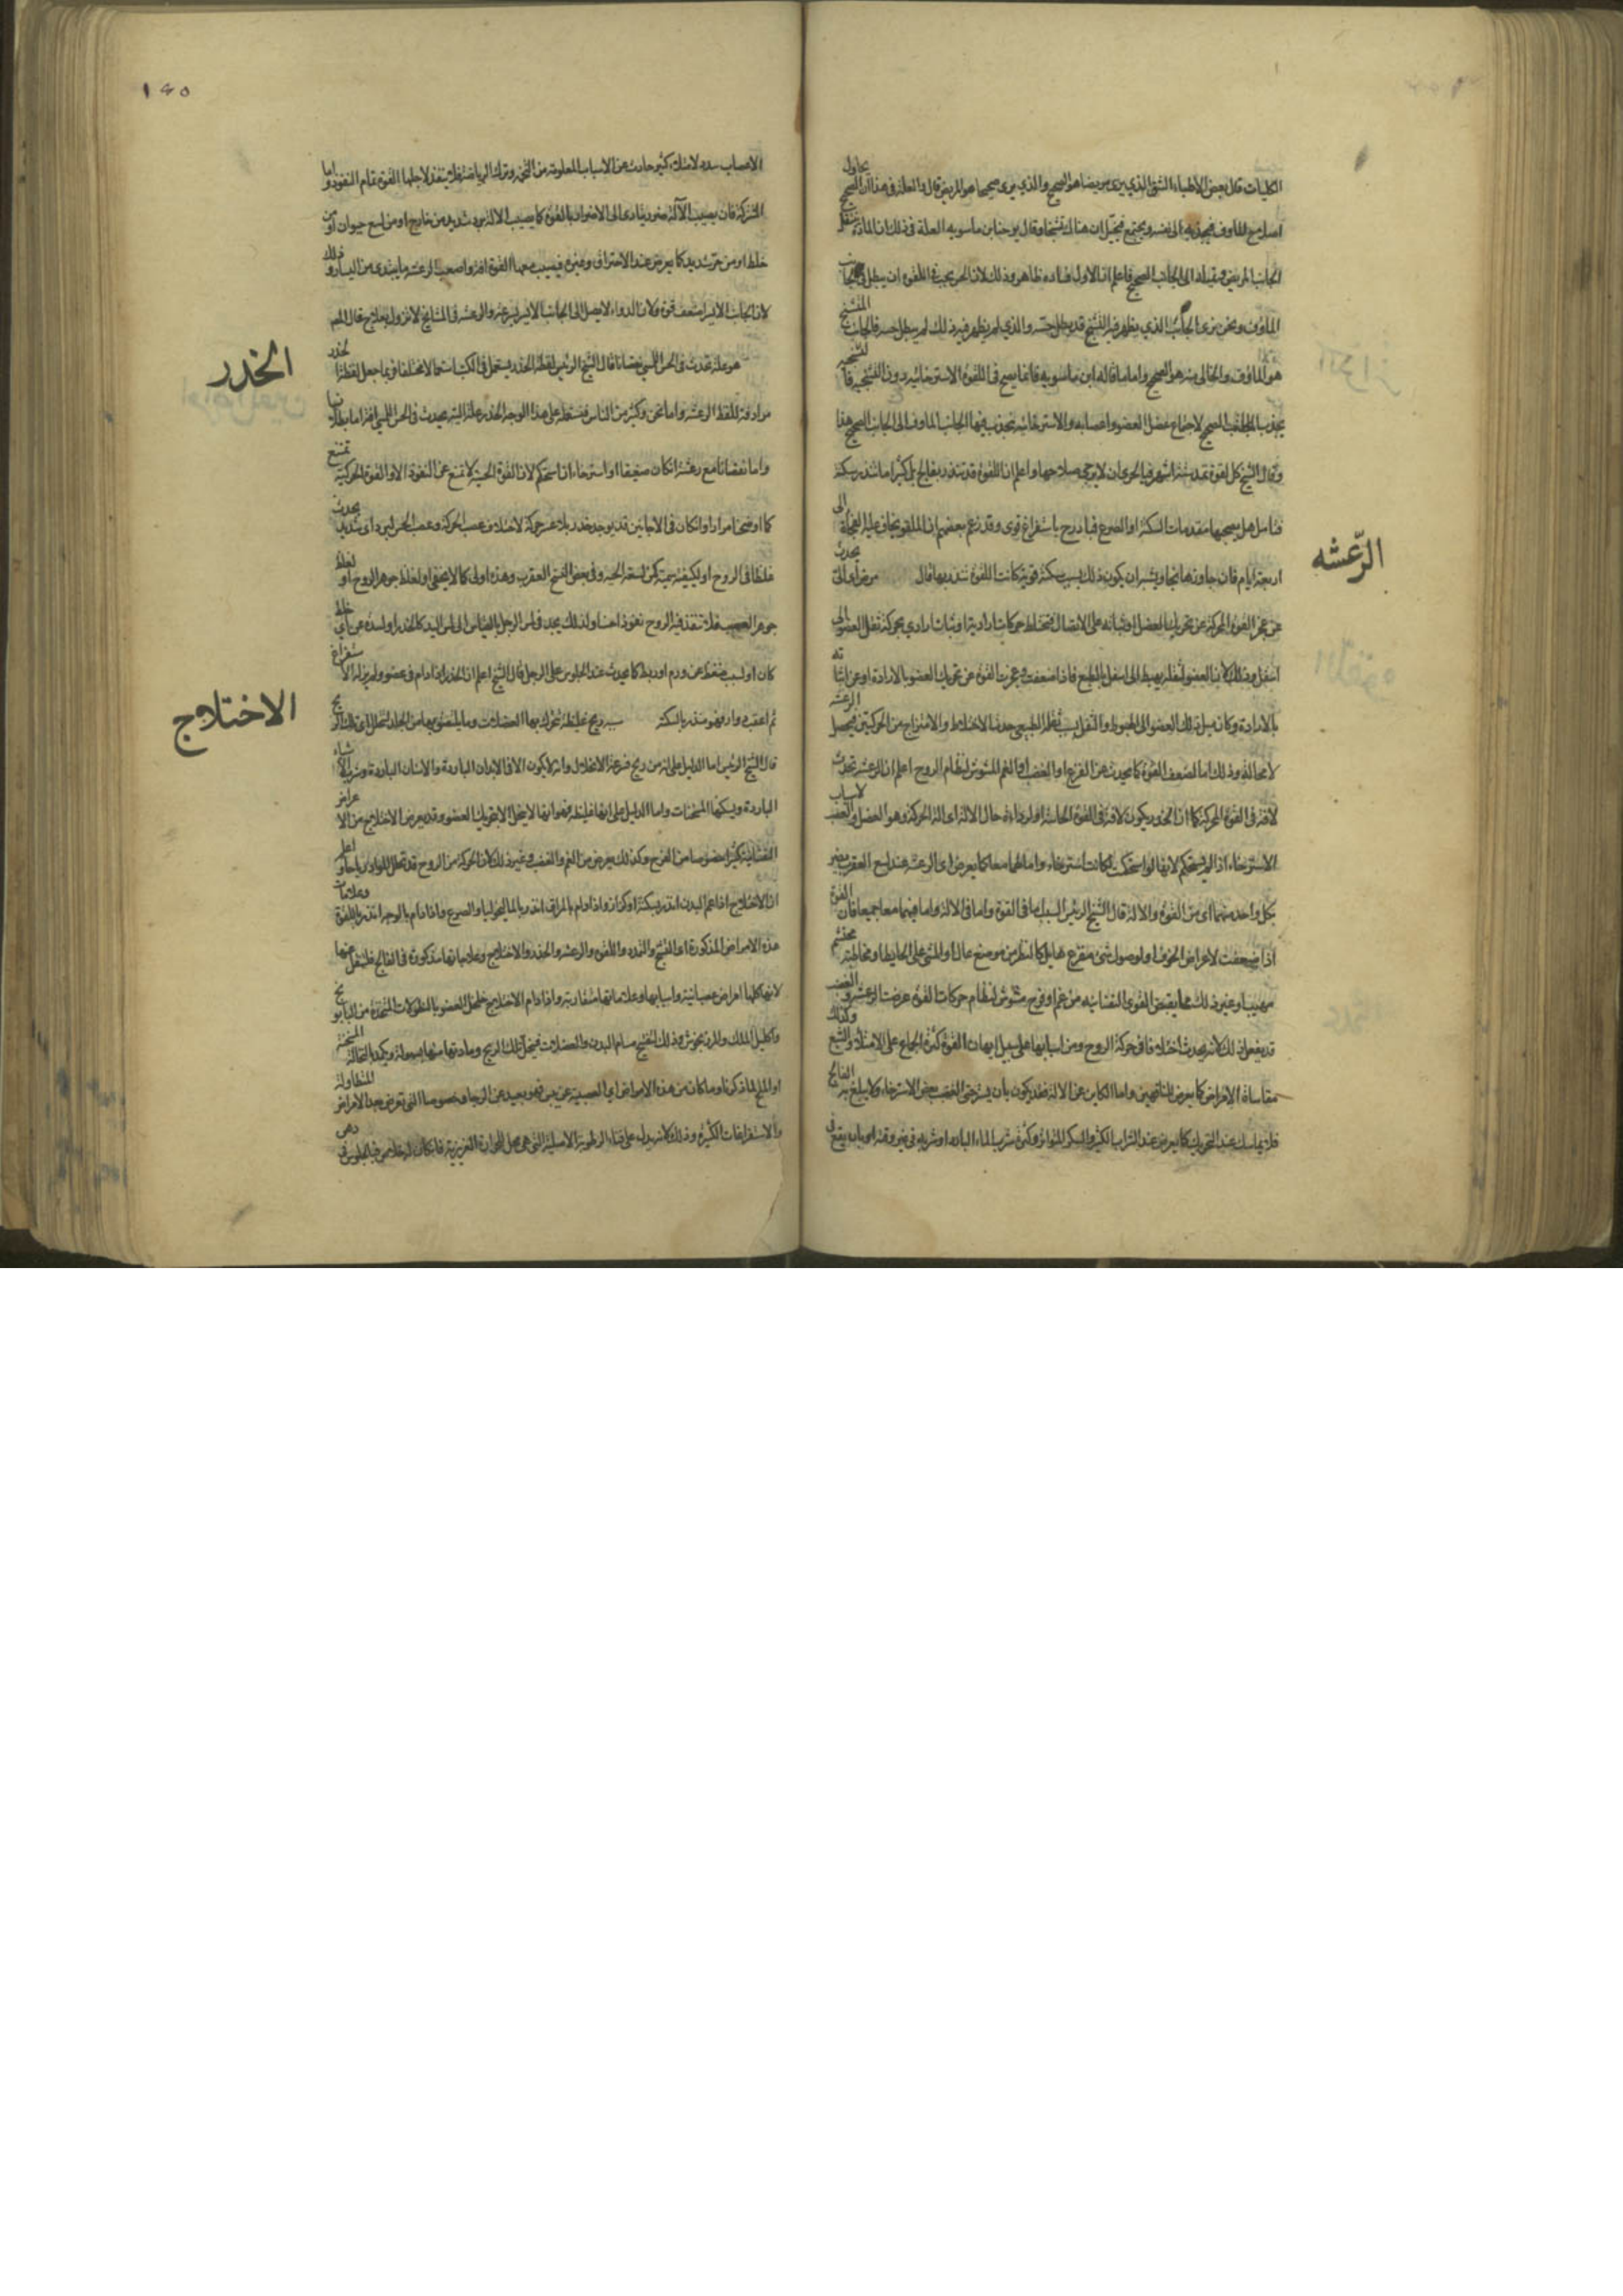 الكليات قال بعض الأطباء الشق الذي يرى مريضا هو الصحيح والذي يرى صحيحا هو المريض قال والعلة في هذا أن الصحيح يحاول
وقال يوحنا بن ماسويه العلة في ذلك ان المادة تشغل
الجانب المريض فاعلم ان الاول فساده ظاهر وذلك لان الحس يجب في اللقوة ان يبطل في الجانب
الماوف ونحن نرى الجانب الذي يظهر فيه التشنج قد بطل حسه والذي لم يظهر فيه ذلك لم يبطل حسه فالجانب المتشنج
هو الماوف والخالي منه هو الصحيح واما ما قاله ابن ماسويه فانما يصح في اللقوة الاسترخائية دون التشنجية
لاجتماع عضل العضو واعصابه والاسترخائية ينجذب فيها الجانب الماوف الى الجانب الصحيح هذا
وقال الشيخ كل لقوة تمتد ستة اشهر فبالحري ان لا يرجى صلاحها واعلم ان اللقوة قد تنذر بفالج بل كثيرا ما تنذر بسكتة
فتأمل هل يصحبها مقدمات السكتة او الصرع فبادر ح باستفراغ قوي وقد زعم بعضهم ان الملقو يخاف عليه الفجأة الى
اربعة ايام فان جاوزها نجا ويشبه ان يكون ذلك بسبب سكتة قوية كانت اللقوة تنذر بها قال مرض آلي يحدث
الرّعشه
عن عجز القوة المحركة عن تحريك العضل او ثباته على الاتصال فتختلط حركات ارادية او ثبات ارادي بحركة ثقل العضو الى
اسفل وذلك لان العضو لثقله يهبط الى اسفل بالطبع فاذا ضعفت وعجزت القوة عن تحريك العضو بالارادة او عن اثباته
بالارادة وكان ميل ذلك العضو الى الهبوط والتفل بسبب ثقله الطبيعي حدث الاختلاط والامتزاج من الحركتين فيحصل الرعشة
لا محالة وذلك اما لضعف القوة كما يحدث عن الفزع او الغضب او الغم المشوش لنظام الروح اعلم ان الرعشة تحدث
لآفة في القوة المحركة كما ان الخدر يكون لآفة في القوة الحاسة او لرداءة حال الآلة اي آلة الحركة وهو العضل والعصب لاسباب
الاسترخاء اذا لم يستحكم لانها لو استحكمت لكانت استرخاء واما لهما معا كما يعرض اي الرعشة عند لسع العقرب
بكل واحد منهما اي من القوة والآلة قال الشيخ الرئيس السبب اما في القوة واما في الآلة واما فيهما معا جميعا فان القوة
اذا ضعفت لاعراض الخوف او لوصول شيء مفزع هايل كالنظر من موضع عال او المشي على الحايط او مخاطبة محتشم
مهيب او غير ذلك مما يقبض القوى النفسانية من غم او فرح مشوش لنظام حركات القوة عرضت الرعشة والغضب
قد يفعل ذلك لانه يحدث اختلافا في حركة الروح ومن اسبابها على سبيل ايهان القوة كثرة الجماع على الامتلاء والشبع وكذلك
مقاساة الامراض كما يعرض للناقهين واما الكاين عن الآلة فقد يكون بان يسترخي العصب بعض الاسترخاء ولا يبلغ به الفالج
فلا يتماسك عند التحريك كما يعرض عند الشراب الكثير والسكر المتواتر وكثرة شرب الماء البارد او شربه في غير وقته او بان يقع في
١٤٥
الاعصاب سدد لامتلاء كثير حادث عن الاسباب المعلومة من التخم وترك الرياضة فلا ينفذ لاجلها القوة تمام النفوذ واما
المشتركة فان يصيب الآلة ضرر يتادى الى الاضرار بالقوة كما يصيب الآلة برد شديد من خارج او من لسع حيوان او من
خلط او من حر شديد كما يعرض عند الاحتراق وغيره فيصيب معها القوة آفة واصعب الرعشة ما يبتدي من اليسار وذلك
لان الجانب الايسر اضعف قوة ولان الدواء لا يصل الى الجانب الايسر بسرعة والرعشة في المشايخ لا تزول بعلاج قال
الخدر
هو علة تحدث في الحس اللمسي نقصانا قال الشيخ الرئيس لفظة الخدر يستعمل في الكتب استعمالا مختلفا فربما جعل لفظة الخدر
مرادفة للفظ الرعشة واما نحن وكثير من الناس فنستعمله على هذا الوجه الخدر علة آلية يحدث في الحس اللمسي آفة اما بطلانا
واما نقصانا مع رعشة ان كان ضعيفا او استرخاء ان استحكم لان القوة الحسية لا تمتنع عن النفوذ الا والقوة الحركية تمتنع
كما اوضحنا مرارا وان كان في الاحايين قد يوجد خدر بلا عسر حركة لاختلاف عصب الحركة وعصب الحس لبرد اي شديد يحدث
غلظا في الروح او لكيفية سمية كمن لسعه الحية وفي بعض النسخ العقرب وهذه اولى كما لا يخفى او لغلظ جوهر الروح او لغلظ
جوهر العصب فلا تنفذ فيه الروح نفوذا حسنا ولذلك يجد في لمس الرجل بالقياس الى لمس اليد كالخدر او لسدة عن اي خلط
كان او لسبب ضغط عن ورم او ربط كما يحدث عند الجلوس على الرجل قال الشيخ اعلم ان الخدر اذا دام في عضو ولم يزله الاستفراغ
ثم اعقب دوارا فهو منذر بالسكتة سببه ريح غليظة تتحرك بها العضلات وما يلتصق بها من الجلد لتحلل اي تلك الريح
الاختلاج
قال الشيخ الرئيس اما الدليل على انه من ريح فسرعة الانحلال وانه لا يكون الا في الابدان الباردة والاسنان الباردة وشرب الاشياء
الباردة ويسكنها المسخنات واما الدليل على انها غليظة فهو انها لا ينحل الا بتحريك العضو وقد يعرض الاختلاج من الاعراض
النفسانية كثيرا خصوصا من الفرح وكذلك يعرض من الغم والغضب وغير ذلك لان الحركة من الروح قد تحلل المواد رياحا واعلم
ان الاختلاج اذا عم البدن انذر بسكتة او كزاز واذا دام بالمراق انذر بالماليخوليا والصرع واذا دام بالوجه انذر باللقوة وعلامات
هذه الامراض المذكورة اي التشنج والتمدد واللقوة والرعشة والخدر والاختلاج وعلاجاتها مذكورة في الفالج فلينقل عنها
لانها كلها امراض عصبانية واسبابها وعلاماتها متقاربة واذا دام الاختلاج خلخل العضو بالنطولات المتخذة من البابونج
واكليل الملك والمرزنجوش وذلك لتفتيح مسام البدن والعضلات فيتحلل تلك الريح ومادتها منها بسهولة ويكمد بالنخالة المسخنة
او الملح لما ذكرنا وما كان من هذه الامراض اي العصبية عن يبس فهو بعيد عن الرجاء وخصوصا التي تعرض بعد الامراض المتطاولة
والاستفراغات الكثيرة وذلك لانه يدل على فناء الرطوبة الاصلية التي هي محل الحرارة الغريزية فان كان له خلاص فبالجلوس في دهن